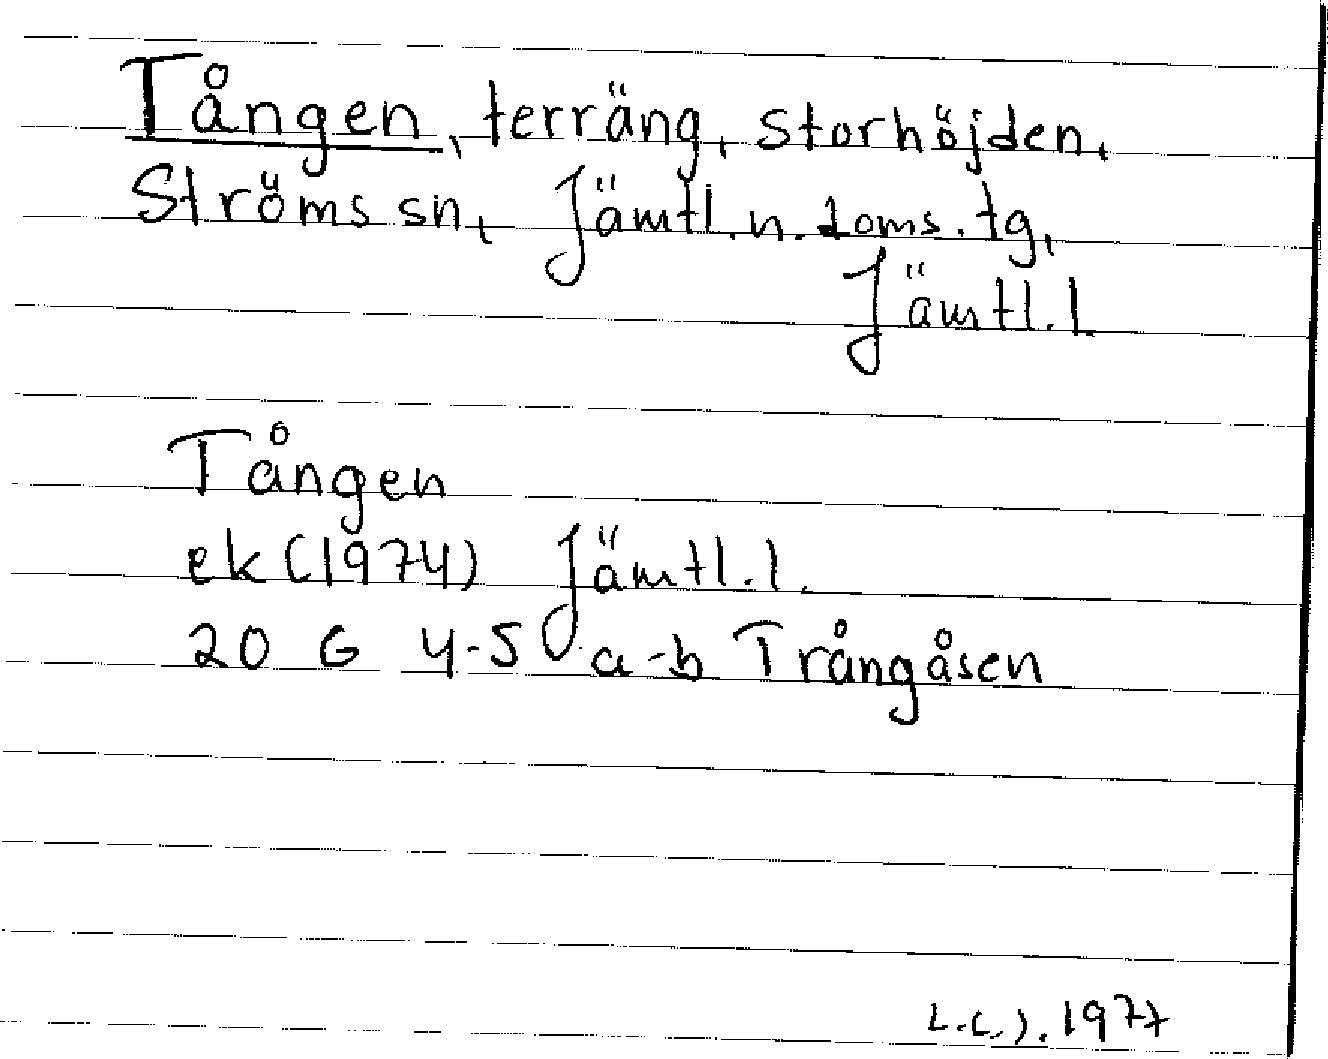 Tången, terräng, storhöjden,
Ströms sn, Jämtl. n. doms. tg,
Jämtl. l
Tången
ek (1974) Jämtl. l.
20 G 4-5 a-b Trångåsen
1977